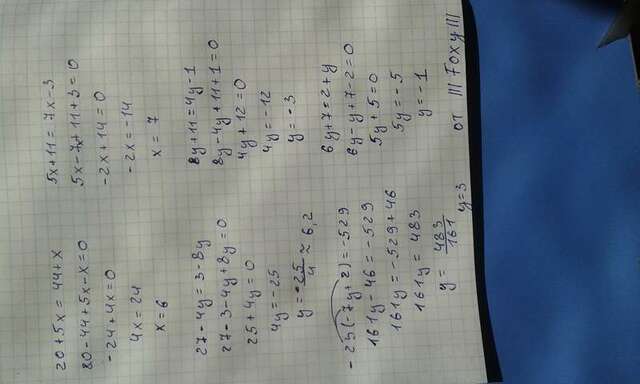 20+5x=44+x
80-44+5x-x=0
-24+4x=0
4x=24
x=6
27-4y=3-8y
27-3-4y+8y=0
25+4y=0
4y=-25
y=-25/4≈6,2
-23(-7y+2)=-529
161y-46=-529
161y=-529+46
161y=483
y=483/161
y=3
5x+11=7x-3
5x-7x+11+3=0
-2x+14=0
-2x=-14
x=7
8y+11=4y-1
8y-4y+11+1=0
4y+12=0
4y=-12
y=-3
6y+7=2+y
6y-y+7-2=0
5y+5=0
5y=-5
y=-1
от |||Foxy|||